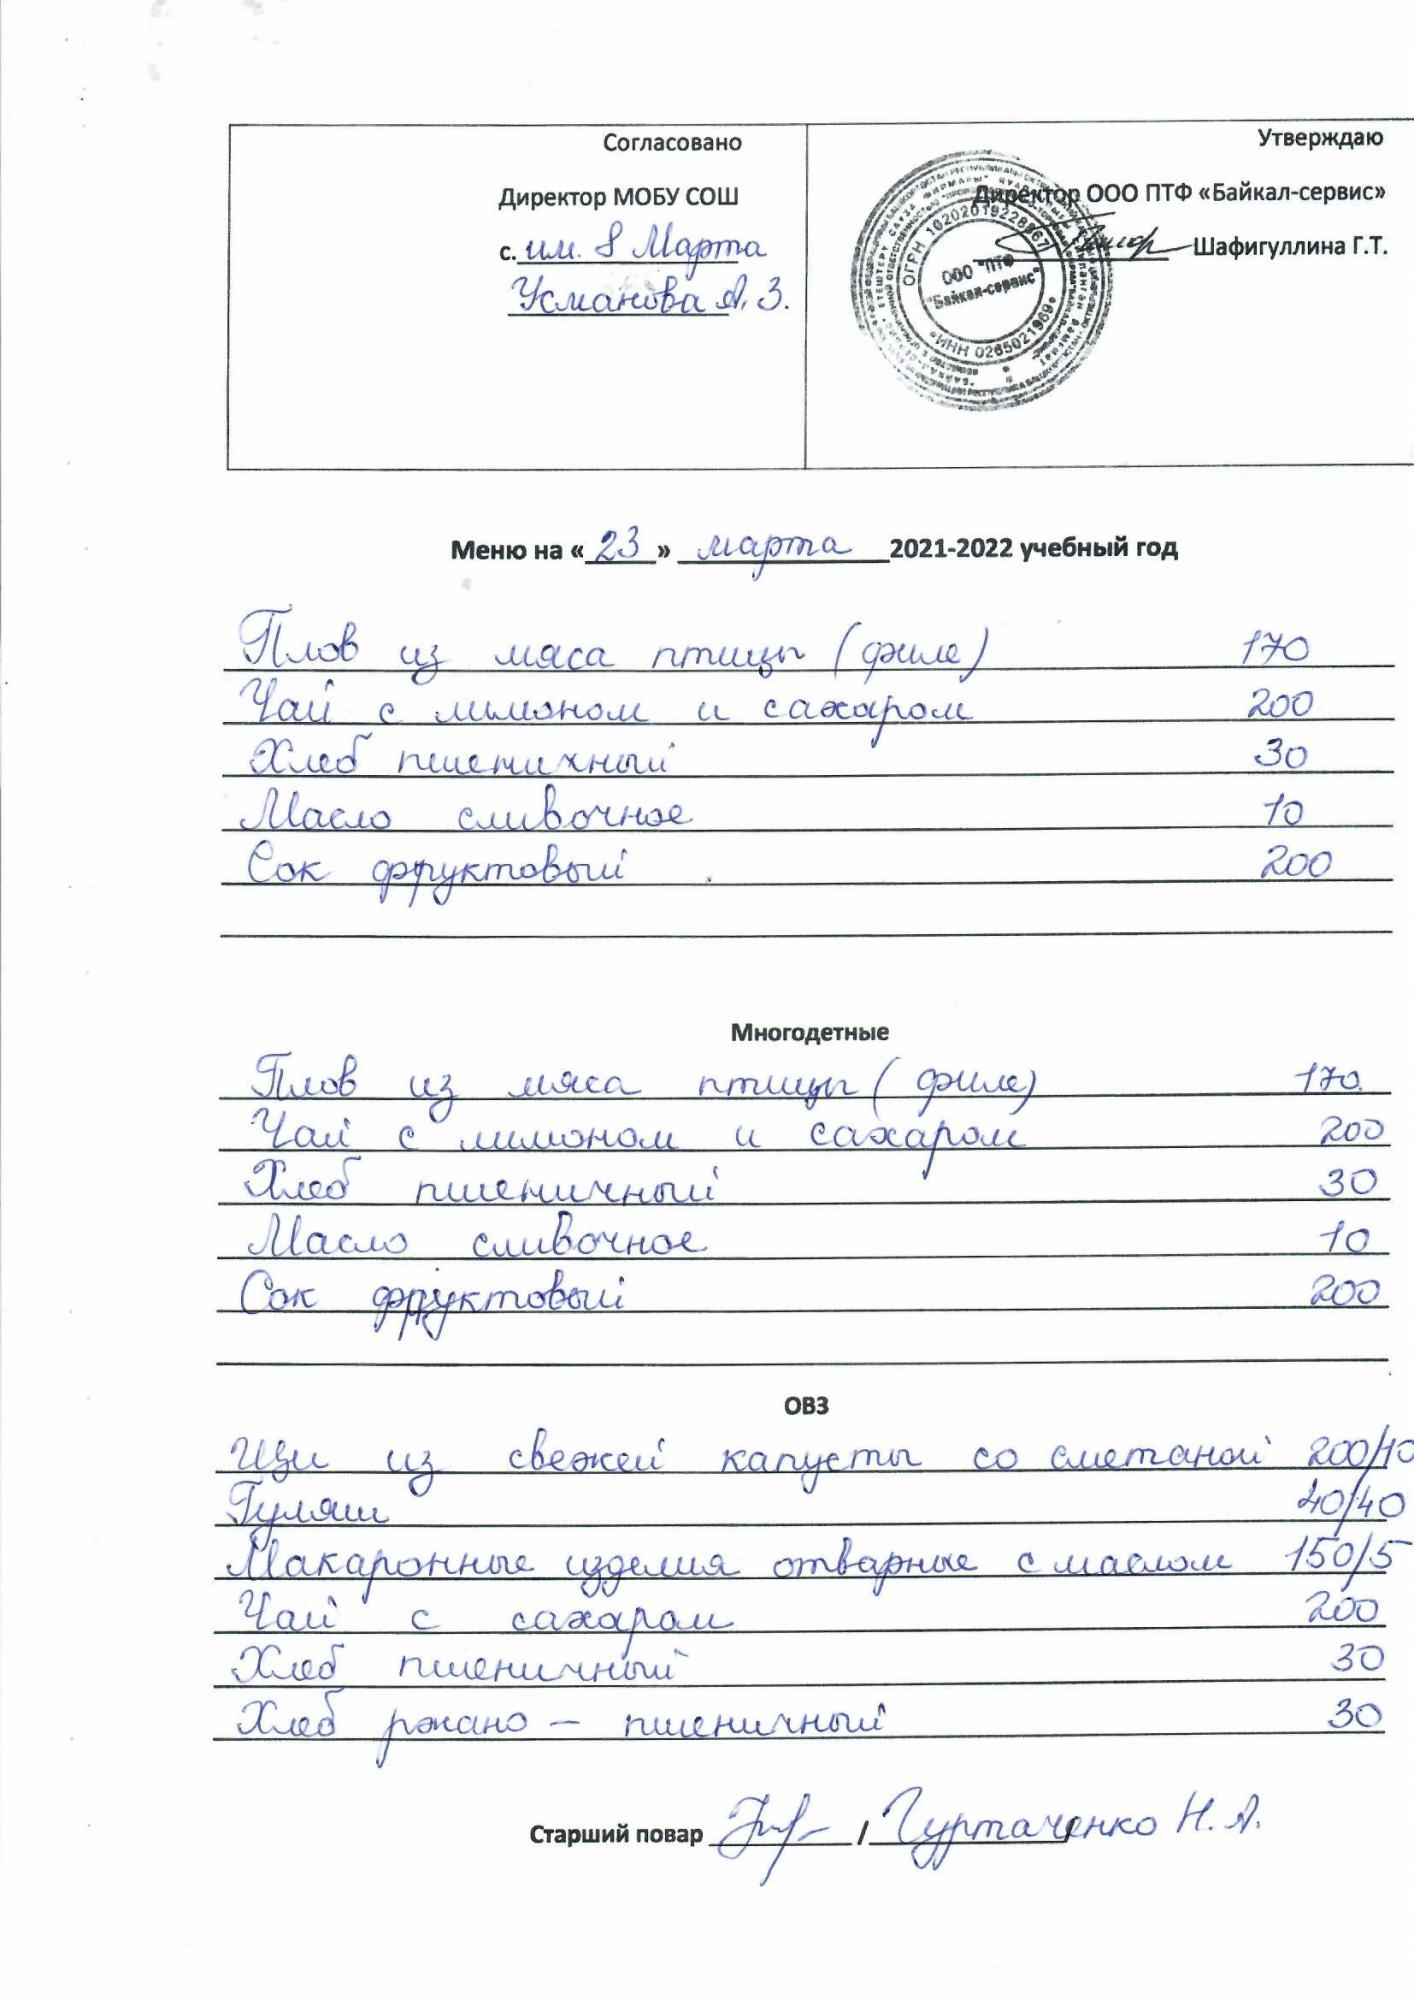 Согласовано
Директор МОБУ СОШ
с. им. 8 Марта
Усманова А. З.
Утверждаю
Директор ООО ПТФ «Байкал-сервис»
Шафигуллина Г.Т.
ОГРН 1020201922896
ООО "ПТФ
"Байкал-сервис"
*ИНН 0265021969*
Меню на « 23 » марта 2021-2022 учебный год
Плов из мяса птицы (филе) 170
Чай с лимоном и сахаром 200
Хлеб пшеничный 30
Масло сливочное 10
Сок фруктовый 200
Многодетные
Плов из мяса птицы (филе) 170
Чай с лимоном и сахаром 200
Хлеб пшеничный 30
Масло сливочное 10
Сок фруктовый 200
ОВЗ
Щи из свежей капусты со сметаной 200/10
Гуляш 40/40
Макаронные изделия отварные с маслом 150/5
Чай с сахаром 200
Хлеб пшеничный 30
Хлеб ржано - пшеничный 30
Старший повар / Гуртаченко Н. А.